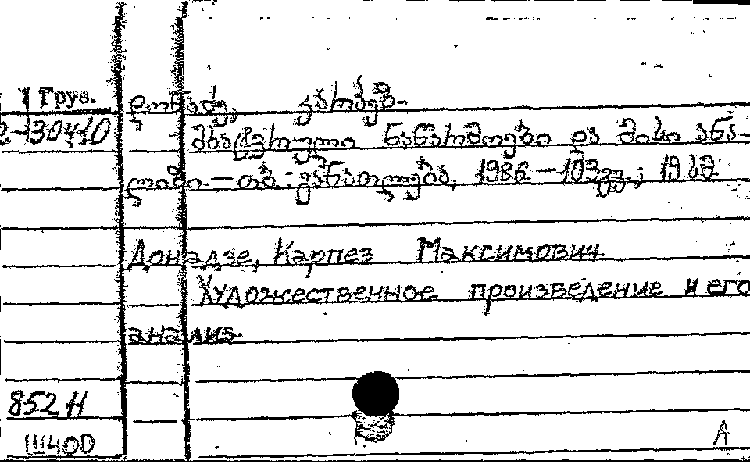 Груз.
დონაძე, კარპეზ.
2-30410
მხატვრული ნაწარმოები და მისი ანა-
ლიზი. — თბ.: განათლება, 1986 — 103გვ.; 19 სმ
Донадзе, Карпез Максимович
Художественное произведение и его
анализ.
852 Н
Ш40D
А